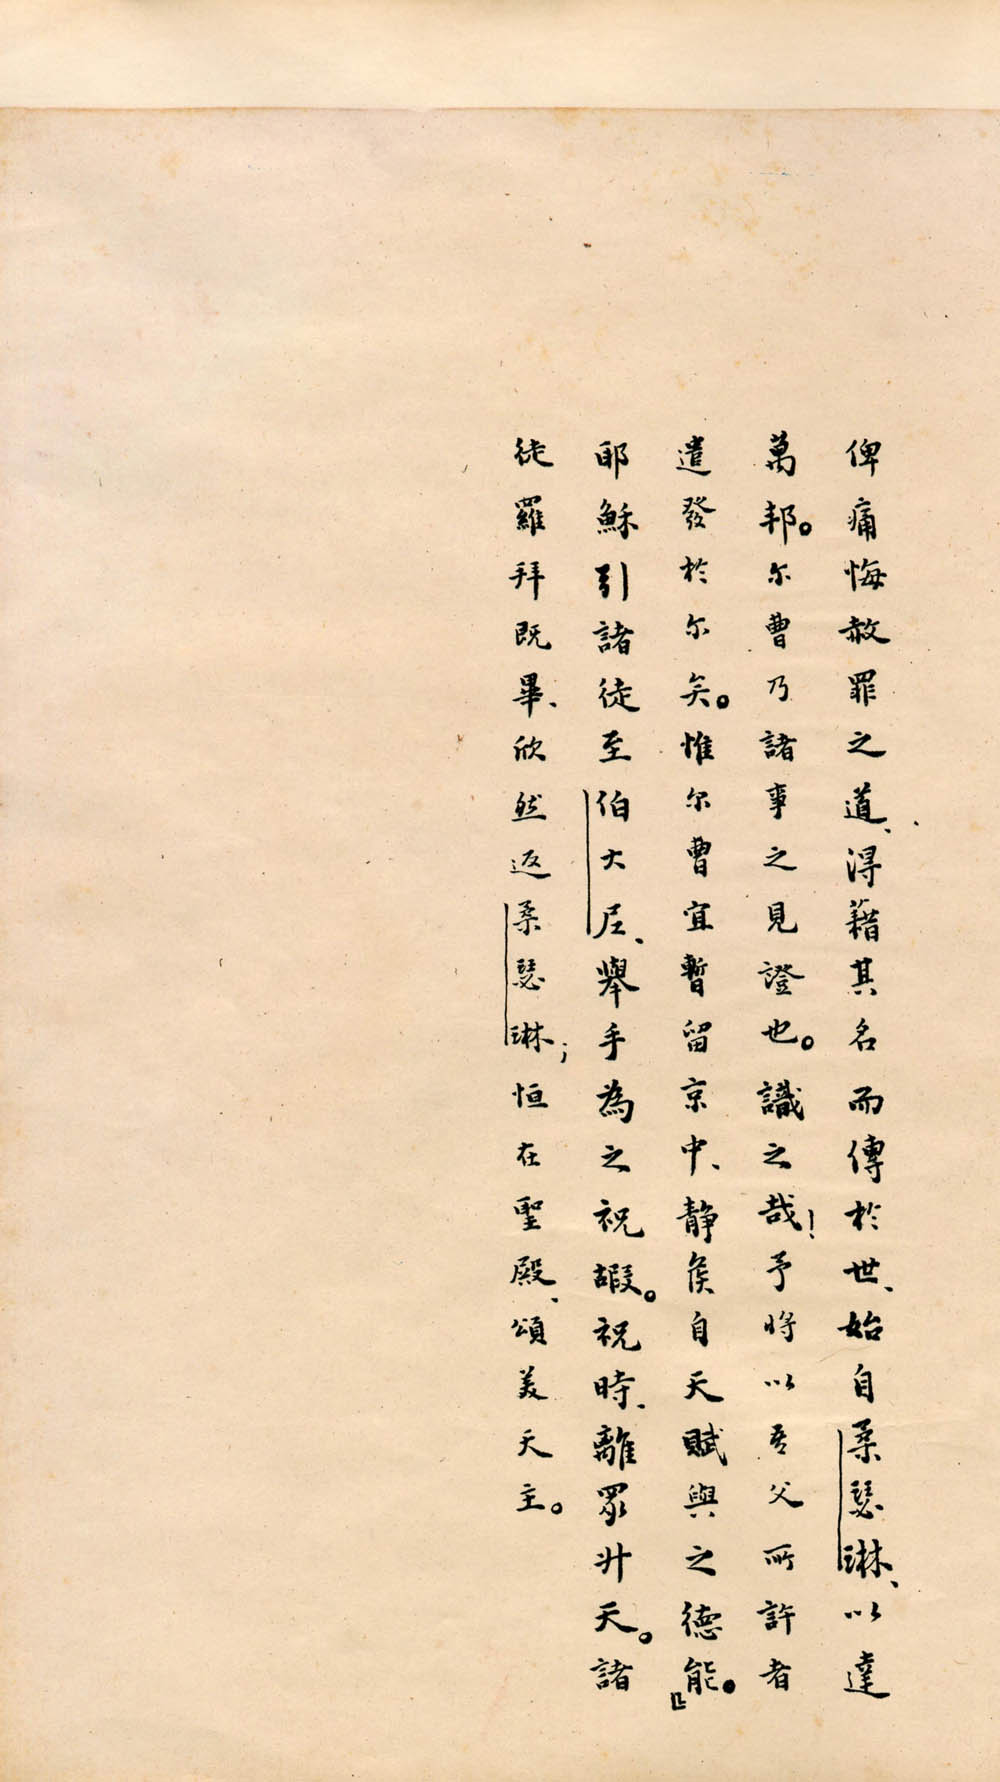 俾痛悔赦罪之道、得藉其名而傳於世、始自柔瑟琳、以達
萬邦。尔曹乃諸事之見證也。識之哉!予將以吾父所許者
遣發於尔矣。惟尔曹宜暫留京中、靜俟自天賦與之德能。』
耶穌引諸徒至伯大尼、舉手為之祝嘏。祝時、離眾升天。諸
徒羅拜既畢、欣然返柔瑟琳;恒在聖殿、頌美天主。